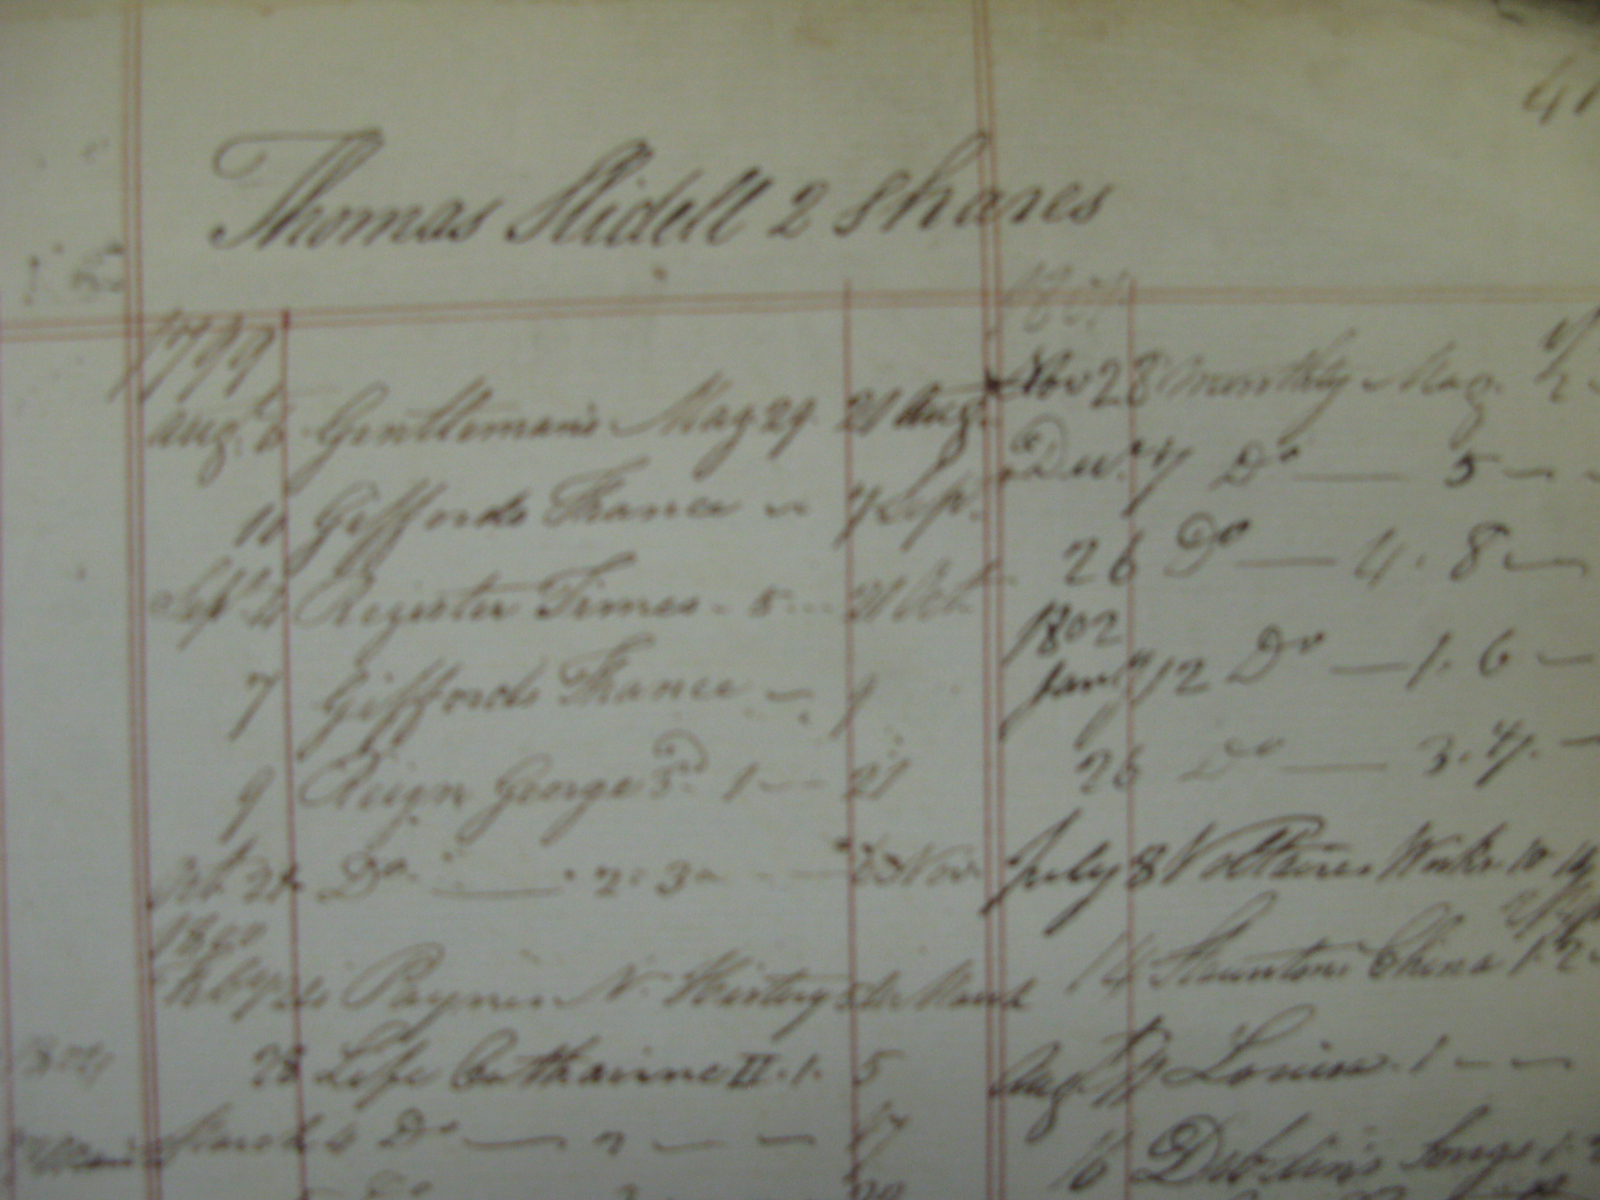 41
Thomas Slidell 2 Shares
1799
Aug. 6 Gentleman's Mag 29. 21 Aug.
10 Giffords France 7 Sep.
Sep 4 Register Times - 5 - 21 Oct
7 Giffords France - 9
9 Reign George 3d. 1 - 21
Oct 21 Do — 2. 3 — 23 Nov.
1800
Paynes N. History March
28 Life Catharine II. 1. 5
March 4 Do — 2 — 17
1801
Nov 28 Monthly Mag.
Dec. 7 Do — 5 —
26 Do — 4. 8 —
1802
Jany 12 Do — 1. 6 —
26 Do — 3. 7. —
July 8 Voltaires Works 10
14 Stauntons China 1. 2
Aug. Louisa. 1 — —
16 Dibdin's Songs 1.